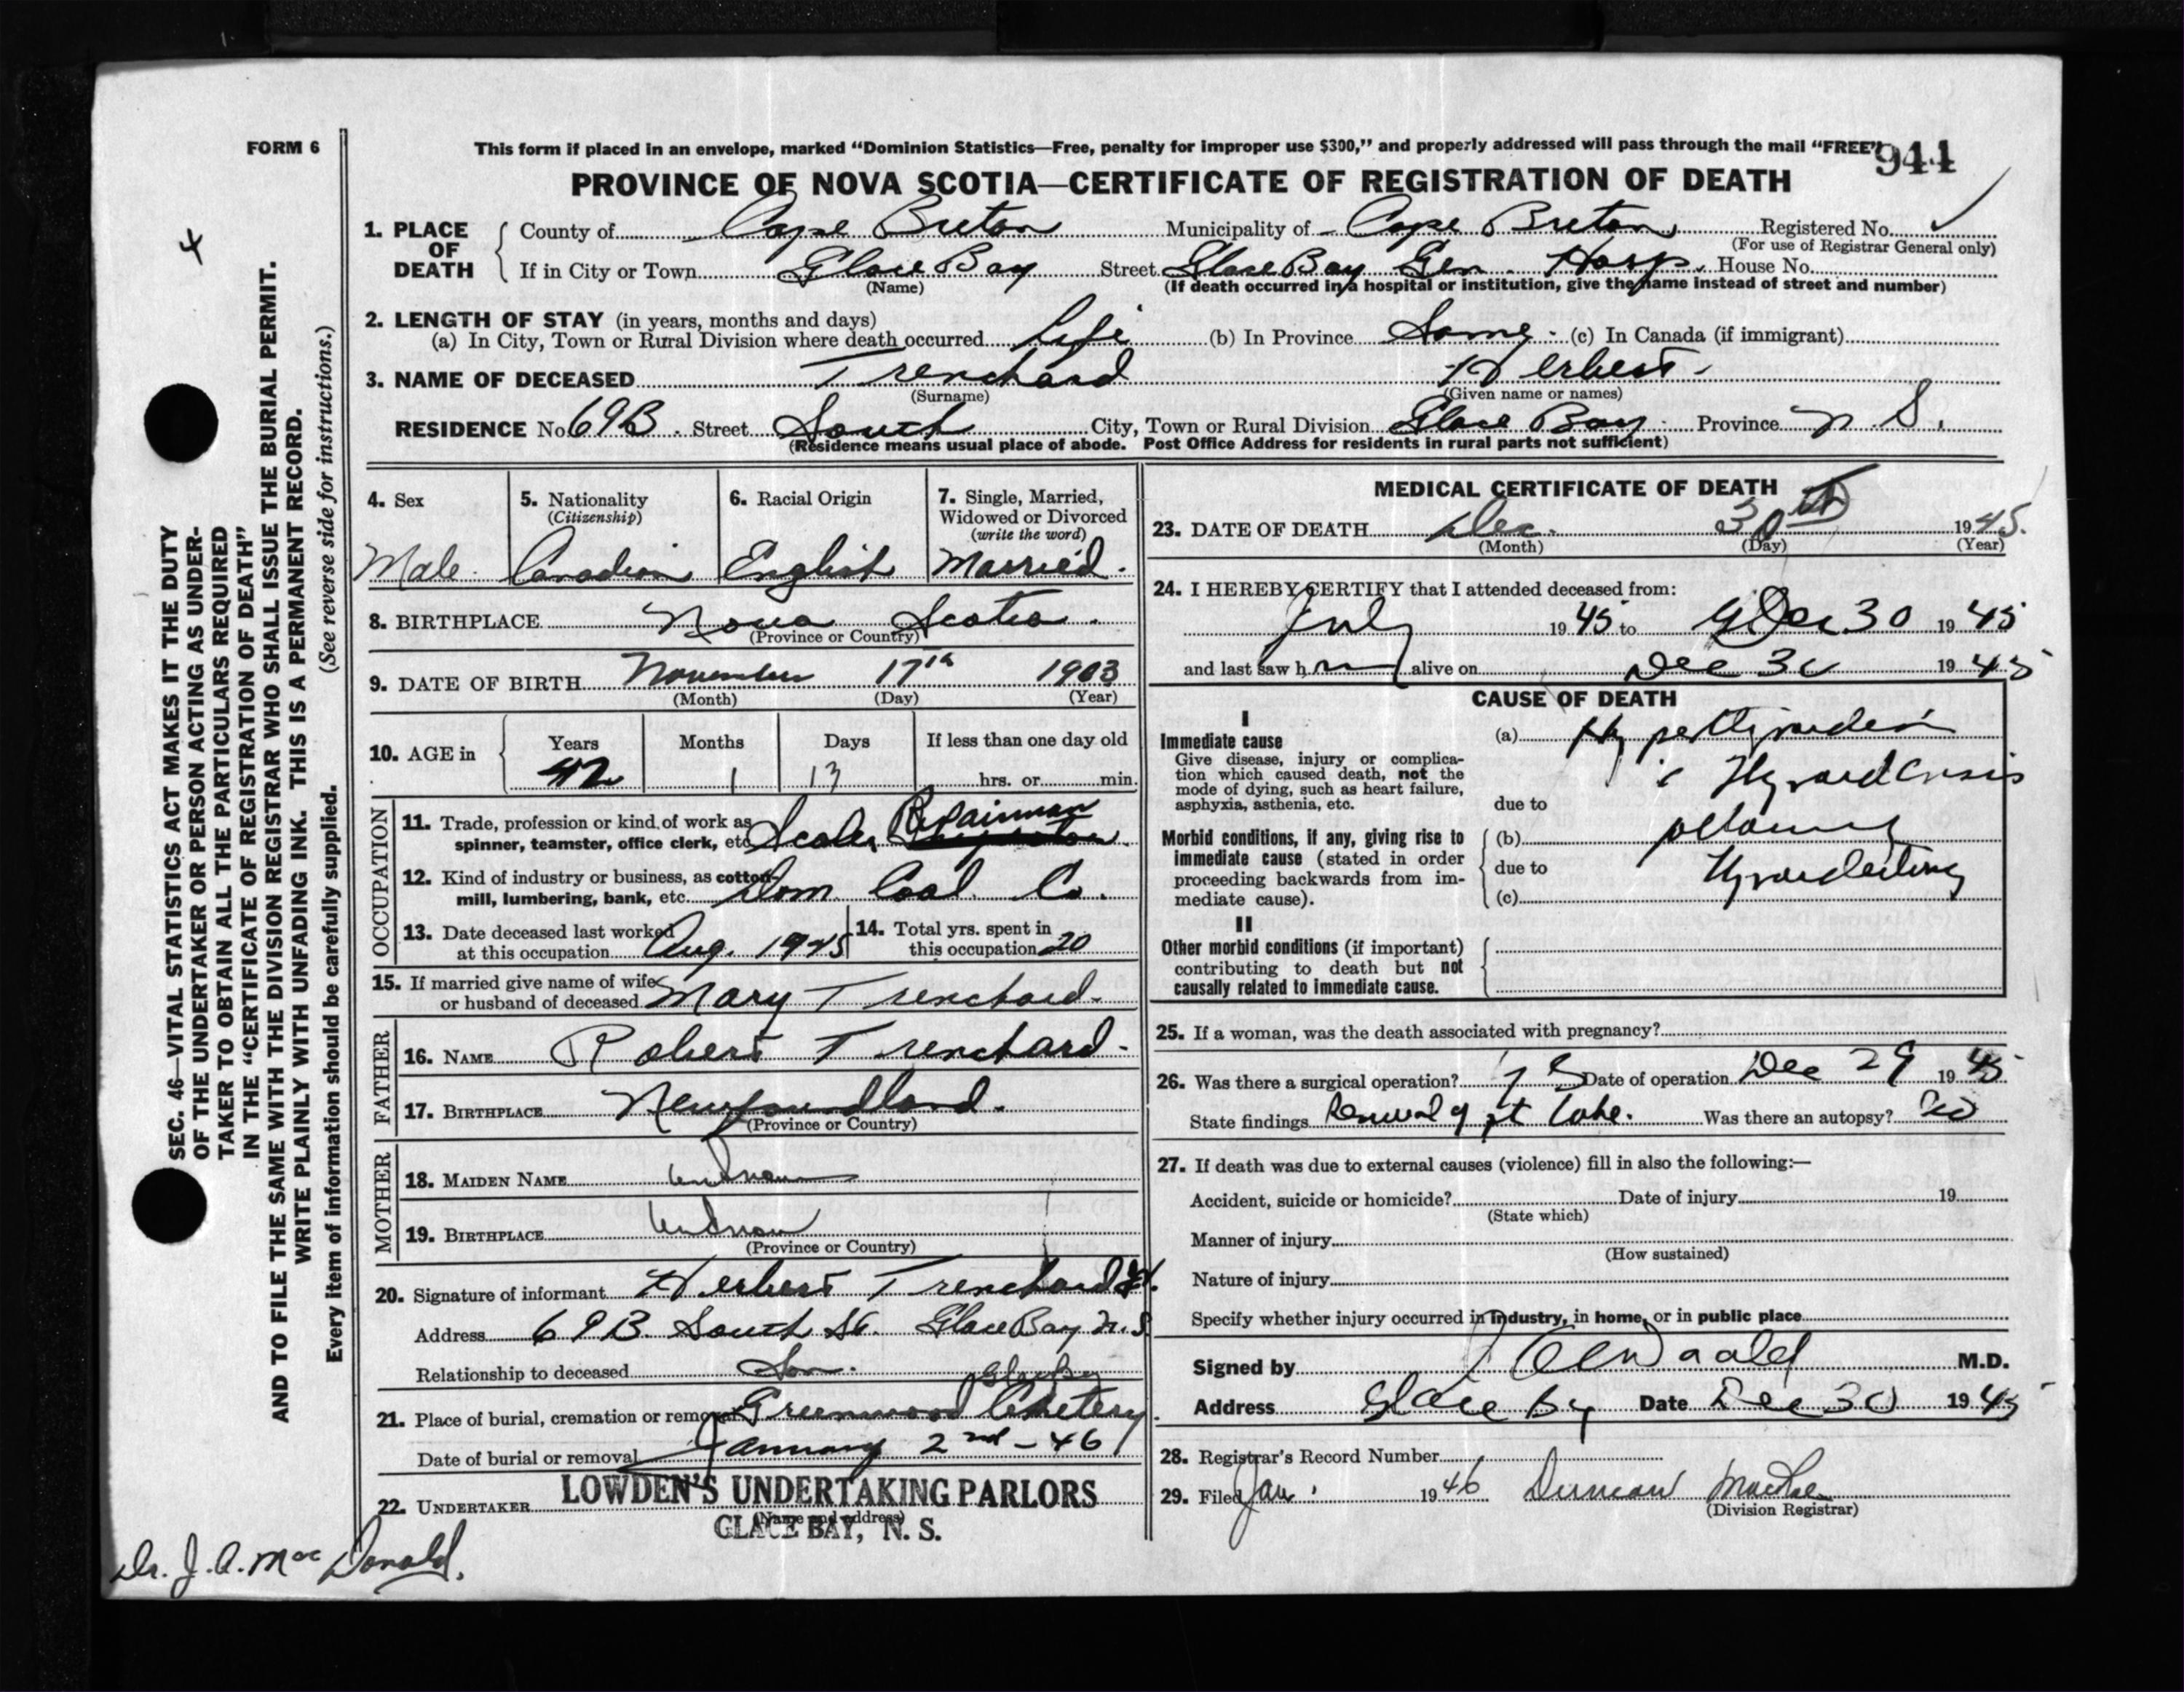 FORM 6
This form if placed in an envelope, marked “Dominion Statistics—Free, penalty for improper use $300,” and properly addressed will pass through the mail “FREE”
944
PROVINCE OF NOVA SCOTIA—CERTIFICATE OF REGISTRATION OF DEATH
1. PLACE OF DEATH
County of Cape Breton Municipality of Cape Breton Registered No.
(For use of Registrar General only)
If in City or Town Glace Bay Street Glace Bay Gen. Hosp. House No.
(Name) (If death occurred in a hospital or institution, give the name instead of street and number)
2. LENGTH OF STAY (in years, months and days)
(a) In City, Town or Rural Division where death occurred Life (b) In Province Same (c) In Canada (if immigrant)
3. NAME OF DECEASED Trenchard Herbert
(Surname) (Given name or names)
RESIDENCE No. 69B. Street South City, Town or Rural Division Glace Bay Province N. S.
(Residence means usual place of abode. Post Office Address for residents in rural parts not sufficient)
4. Sex
Male
5. Nationality
(Citizenship)
Canadian
6. Racial Origin
English
7. Single, Married,
Widowed or Divorced
(write the word)
Married.
8. BIRTHPLACE Nova Scotia.
(Province or Country)
9. DATE OF BIRTH November 17th 1903
(Month) (Day) (Year)
10. AGE in
Years Months Days If less than one day old
42 1 13 hrs. or min.
OCCUPATION
11. Trade, profession or kind of work as
spinner, teamster, office clerk, etc. Scale Repairman
12. Kind of industry or business, as cotton-
mill, lumbering, bank, etc. Dom. Coal. Co.
13. Date deceased last worked
at this occupation Aug. 1945
14. Total yrs. spent in
this occupation 20
15. If married give name of wife
or husband of deceased Mary Trenchard.
FATHER
16. NAME Robert Trenchard.
17. BIRTHPLACE Newfoundland.
(Province or Country)
MOTHER
18. MAIDEN NAME
19. BIRTHPLACE
(Province or Country)
20. Signature of informant Herbert Trenchard
Address 69B. South St. Glace Bay N.S.
Relationship to deceased Son.
21. Place of burial, cremation or removal Greenwood
Glace Bay
Date of burial or removal January 2nd - 46
22. UNDERTAKER LOWDEN'S UNDERTAKING PARLORS
(Name and address)
GLACE BAY, N. S.
Dr. J. A. MacDonald.
MEDICAL CERTIFICATE OF DEATH
23. DATE OF DEATH Dec. 30th 1945.
(Month) (Day) (Year)
24. I HEREBY CERTIFY that I attended deceased from:
July 1945 to Dec 30 1945
and last saw h alive on Dec 30 1945
CAUSE OF DEATH
I
Immediate cause
Give disease, injury or complica-
tion which caused death, not the
mode of dying, such as heart failure,
asphyxia, asthenia, etc.
(a)
Thyroid Crisis
due to
Morbid conditions, if any, giving rise to
immediate cause (stated in order
proceeding backwards from im-
mediate cause).
(b)
due to
Thyroidectomy
(c)
II
Other morbid conditions (if important)
contributing to death but not
causally related to immediate cause.
25. If a woman, was the death associated with pregnancy?
26. Was there a surgical operation? Date of operation Dec 29 1945
State findings Removal of rt lobe. Was there an autopsy? No
27. If death was due to external causes (violence) fill in also the following:—
Accident, suicide or homicide? Date of injury 19
(State which)
Manner of injury
(How sustained)
Nature of injury
Specify whether injury occurred in industry, in home, or in public place
Signed by M.D.
Address Glace Bay Date Dec 30 1945
28. Registrar's Record Number
29. Filed Jan. 1946 Duncan MacRae
(Division Registrar)
4
SEC. 46—VITAL STATISTICS ACT MAKES IT THE DUTY
OF THE UNDERTAKER OR PERSON ACTING AS UNDER-
TAKER TO OBTAIN ALL THE PARTICULARS REQUIRED
IN THE “CERTIFICATE OF REGISTRATION OF DEATH”
AND TO FILE THE SAME WITH THE DIVISION REGISTRAR WHO SHALL ISSUE THE BURIAL PERMIT.
WRITE PLAINLY WITH UNFADING INK. THIS IS A PERMANENT RECORD.
Every item of information should be carefully supplied. (See reverse side for instructions.)